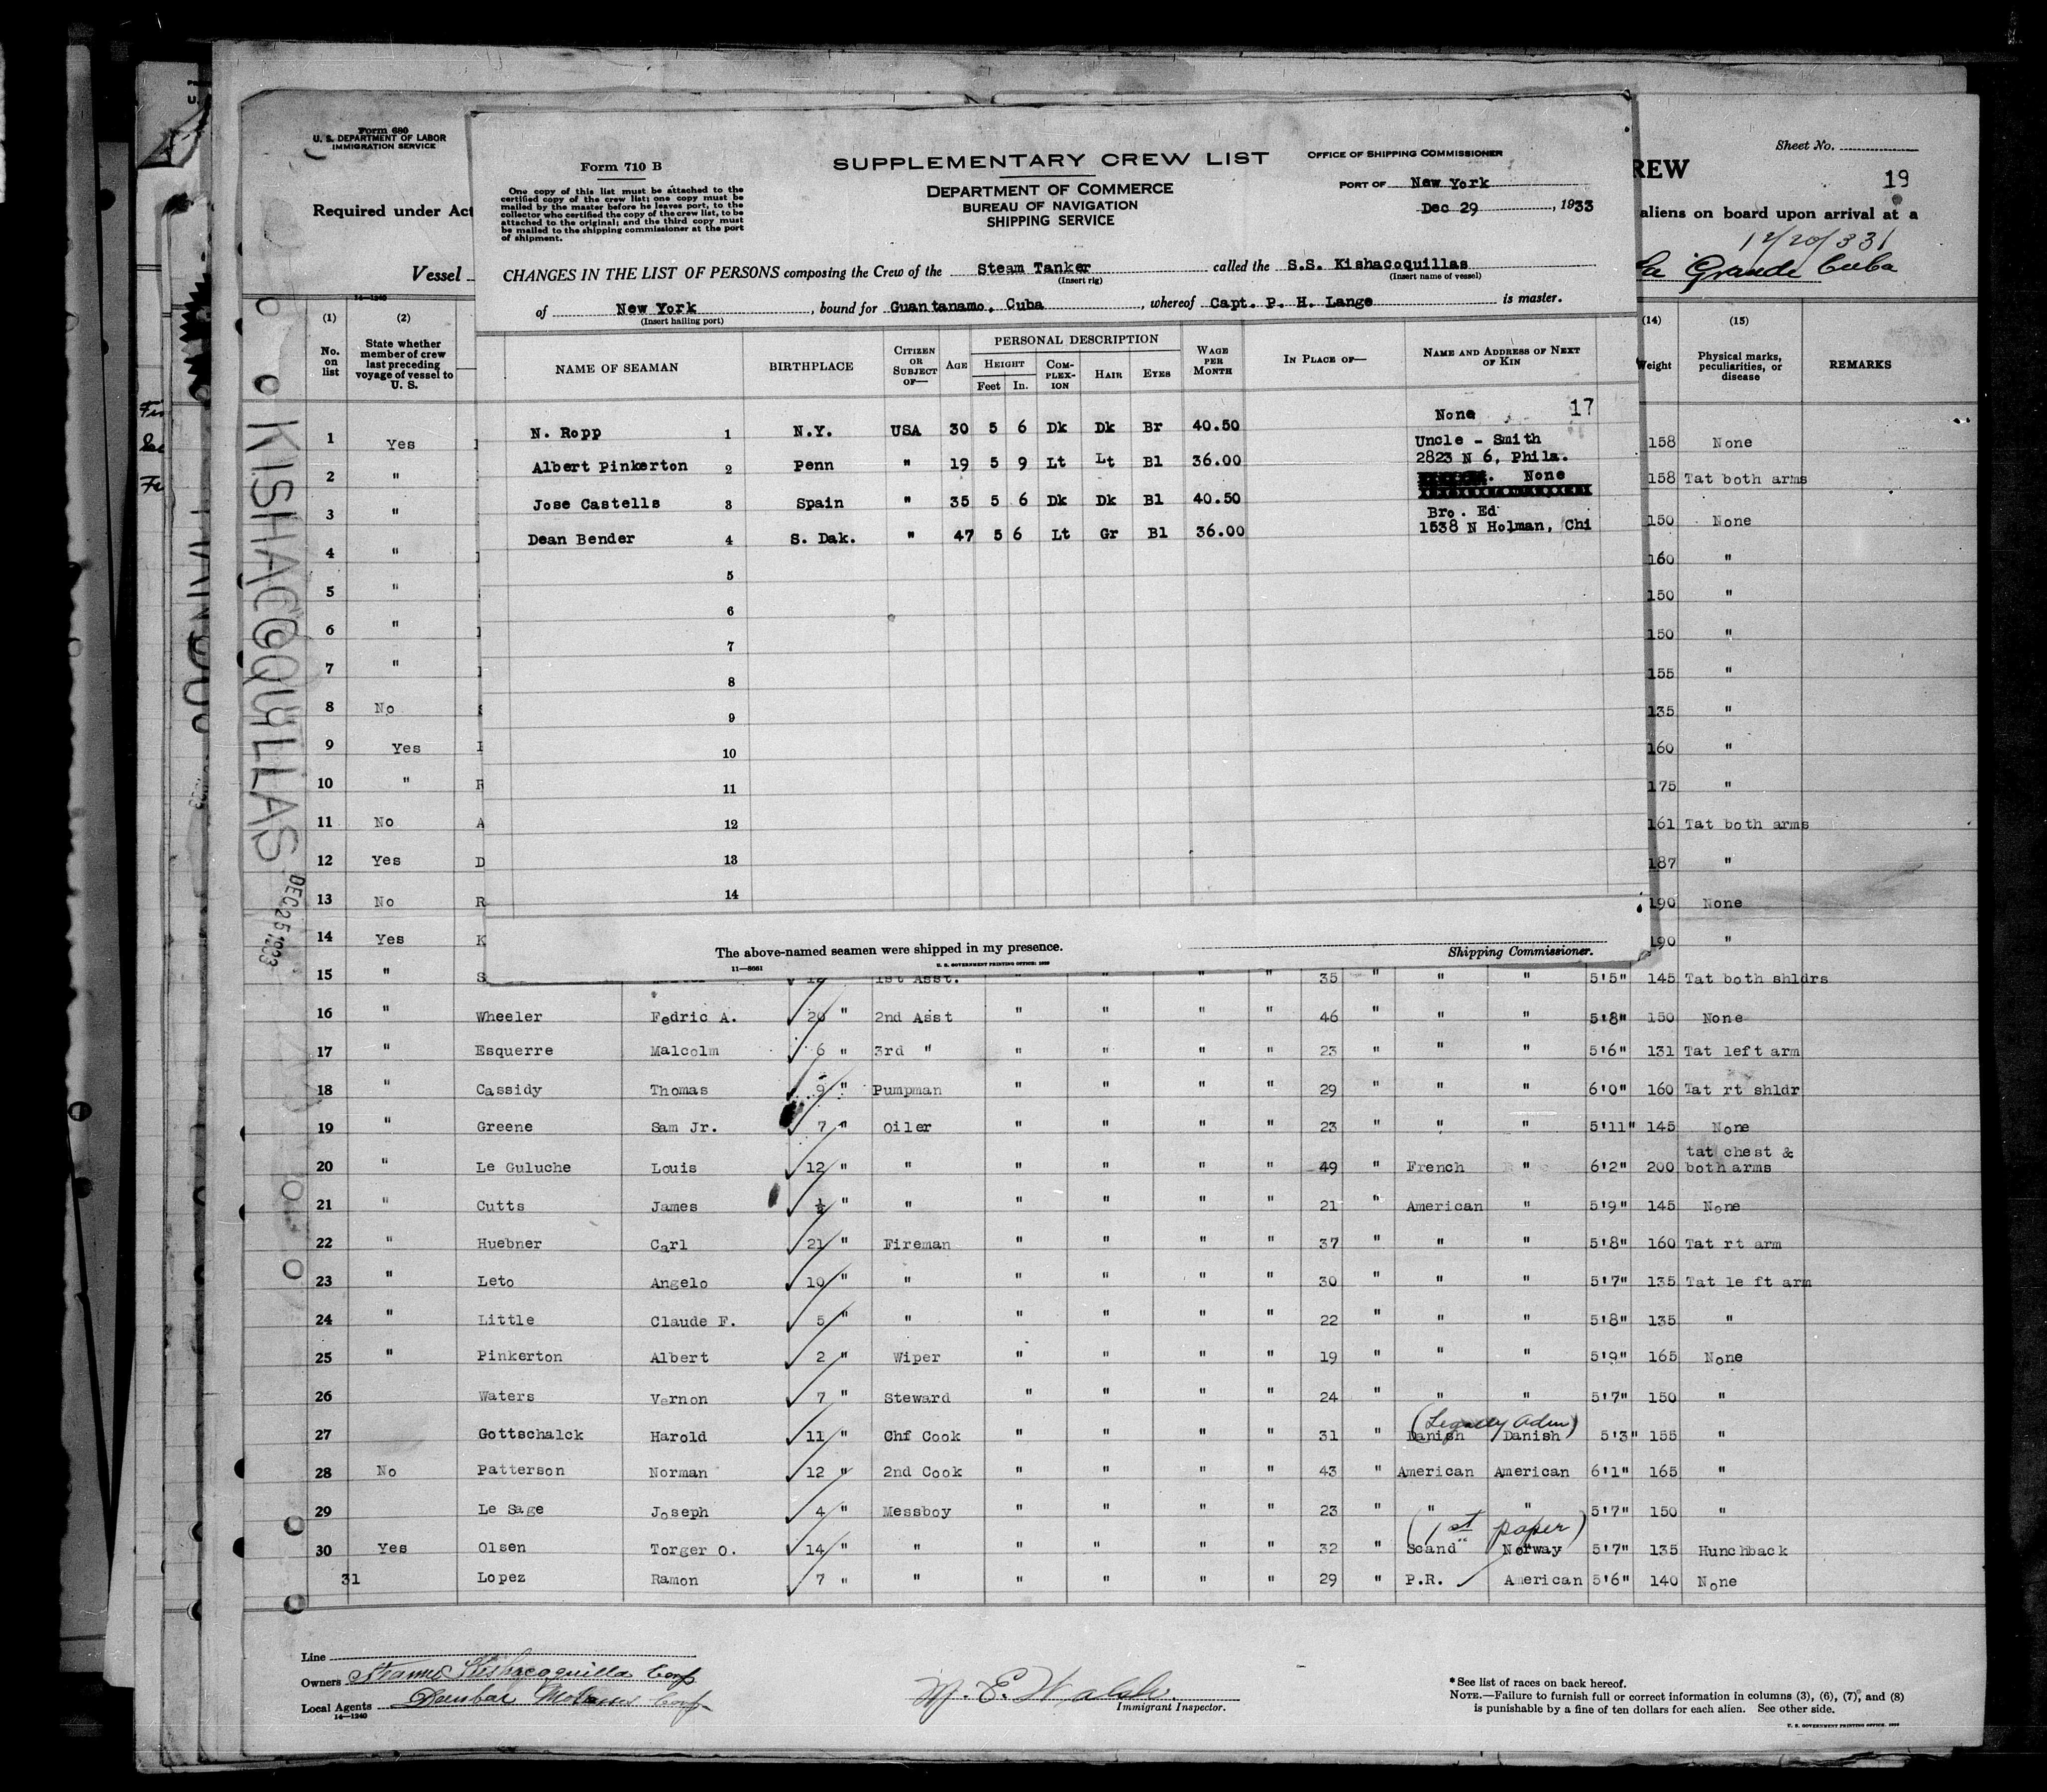 Form 680
U. S. DEPARTMENT OF LABOR
IMMIGRATION SERVICE
Required under Act
Vessel
14—1240
KISHACOQUILLAS
DEC 25 1933
Form 710 B
One copy of this list must be attached to the
certified copy of the crew list; one copy must be
mailed by the master before he leaves port, to the
collector who certified the copy of the crew list, to be
attached to the original; and the third copy must
be mailed to the shipping commissioner at the port
of shipment.
SUPPLEMENTARY CREW LIST
DEPARTMENT OF COMMERCE
BUREAU OF NAVIGATION
SHIPPING SERVICE
OFFICE OF SHIPPING COMMISSIONER
PORT OF New York
Dec 29, 1933
CHANGES IN THE LIST OF PERSONS composing the Crew of the Steam Tanker called the S.S. Kishacoquillas
(Insert rig) (Insert name of vessel)
of New York, bound for Guantanamo, Cuba, whereof Capt. P. H. Lange is master.
(Insert hailing port)
NAME OF SEAMAN BIRTHPLACE CITIZEN OR SUBJECT OF— AGE PERSONAL DESCRIPTION HEIGHT Feet In. COMPLEXION HAIR EYES WAGE PER MONTH IN PLACE OF— NAME AND ADDRESS OF NEXT OF KIN
None 17
N. Ropp 1 N.Y. USA 30 5 6 Dk Dk Br 40.50
Uncle - Smith
Albert Pinkerton 2 Penn " 19 5 9 Lt Lt Bl 36.00 2823 N 6, Phila.
None
Jose Castells 3 Spain " 35 5 6 Dk Dk Bl 40.50
Bro. Ed
Dean Bender 4 S. Dak. " 47 5 6 Lt Gr Bl 36.00 1538 N Holman, Chi
5
6
7
8
9
10
11
12
13
14
The above-named seamen were shipped in my presence. Shipping Commissioner.
11—8661 U. S. GOVERNMENT PRINTING OFFICE: 1933
Sheet No.
REW
19
aliens on board upon arrival at a
12/20/33
la Grande Cuba
(1) (2) (14) (15)
No. on list
State whether member of crew last preceding voyage of vessel to U. S.
Weight
Physical marks, peculiarities, or disease
REMARKS
1 Yes 158 None
2 " 158 Tat both arms
3 " 150 None
4 " 160 "
5 " 150 "
6 " 150 "
7 " 155 "
8 No 135 "
9 Yes 160 "
10 " R 175 "
11 No A 161 Tat both arms
12 Yes D 187 "
13 No R 190 None
14 Yes K 190 "
15 " S 1st Asst. " " " " 35 " " " 5'5" 145 Tat both shldrs
16 " Wheeler Fedric A. 20 " 2nd Asst " " " " 46 " " " 5'8" 150 None
17 " Esquerre Malcolm 6 " 3rd " " " " " 23 " " " 5'6" 131 Tat left arm
18 " Cassidy Thomas 9 " Pumpman " " " " 29 " " " 6'0" 160 Tat rt shldr
19 " Greene Sam Jr. 7 " Oiler " " " " 23 " " " 5'11" 145 None
20 " Le Guluche Louis 12 " " " " " " 49 " French " 6'2" 200 tat chest & both arms
21 " Cutts James ½ " " " " " " 21 " American " 5'9" 145 None
22 " Huebner Carl 21 " Fireman " " " " 37 " " " 5'8" 160 Tat rt arm
23 " Leto Angelo 10 " " " " " " 30 " " " 5'7" 135 Tat left arm
24 " Little Claude F. 5 " " " " " " 22 " " " 5'8" 135 "
25 " Pinkerton Albert 2 " Wiper " " " " 19 " " " 5'9" 165 None
26 Waters Vernon 7 " Steward " " " " 24 " " " 5'7" 150 "
(Legally Adm)
27 Gottschalck Harold 11 " Chf Cook " " " " 31 " Danish Danish 5'3" 155 "
28 No Patterson Norman 12 " 2nd Cook " " " " 43 " American American 6'1" 165 "
29 Le Sage Joseph 4 " Messboy " " " " 23 " " " 5'7" 150 "
(1st paper)
30 Yes Olsen Torger O. 14 " " " " " " 32 " Scand" Norway 5'7" 135 Hunchback
31 Lopez Ramon 7 " " " " " " 29 " P.R. American 5'6" 140 None
Line
Owners Steamer Kishacoquilla Corp
Local Agents Dunbar Molasses Corp
14—1240
M. E. Walsh.
Immigrant Inspector.
*See list of races on back hereof.
NOTE.—Failure to furnish full or correct information in columns (3), (6), (7), and (8)
is punishable by a fine of ten dollars for each alien. See other side.
U. S. GOVERNMENT PRINTING OFFICE: 1933